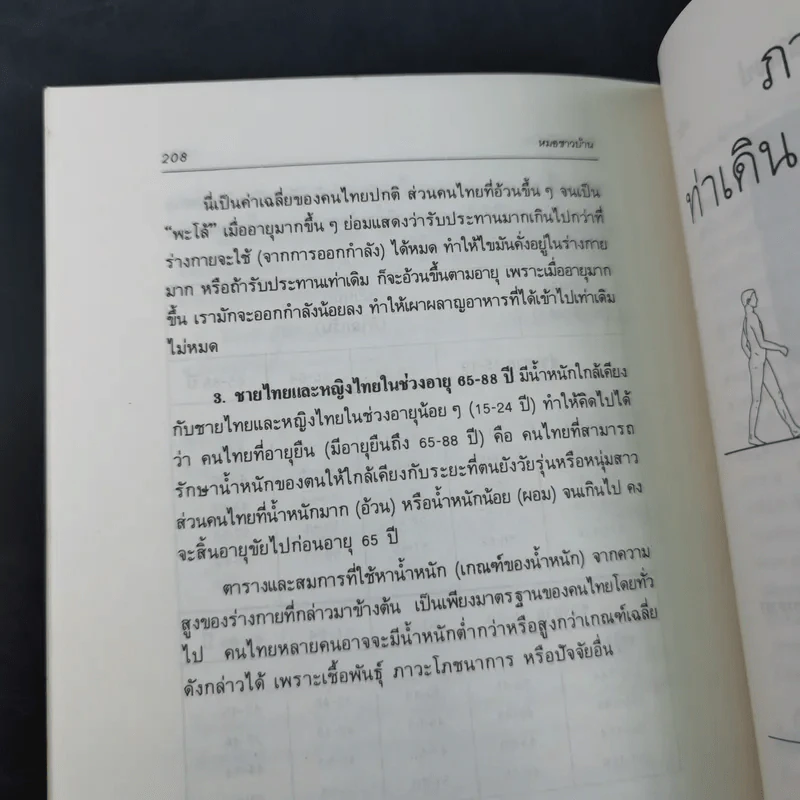 208
หมอชาวบ้าน
นี่เป็นค่าเฉลี่ยของคนไทยปกติ ส่วนคนไทยที่อ้วนขึ้น ๆ จนเป็น
“พะโล้” เมื่ออายุมากขึ้น ๆ ย่อมแสดงว่ารับประทานมากเกินไปกว่าที่
ร่างกายจะใช้ (จากการออกกำลัง) ได้หมด ทำให้ไขมันคั่งอยู่ในร่างกาย
มาก หรือถ้ารับประทานเท่าเดิม ก็จะอ้วนขึ้นตามอายุ เพราะเมื่ออายุมาก
ขึ้น เรามักจะออกกำลังน้อยลง ทำให้เผาผลาญอาหารที่ได้เข้าไปเท่าเดิม
ไม่หมด
3. ชายไทยและหญิงไทยในช่วงอายุ 65-88 ปี มีน้ำหนักใกล้เคียง
กับชายไทยและหญิงไทยในช่วงอายุน้อย ๆ (15-24 ปี) ทำให้คิดไปได้
ว่า คนไทยที่อายุยืน (มีอายุยืนถึง 65-88 ปี) คือ คนไทยที่สามารถ
รักษาน้ำหนักของตนให้ใกล้เคียงกับระยะที่ตนยังวัยรุ่นหรือหนุ่มสาว
ส่วนคนไทยที่น้ำหนักมาก (อ้วน) หรือน้ำหนักน้อย (ผอม) จนเกินไป คง
จะสิ้นอายุขัยไปก่อนอายุ 65 ปี
ตารางและสมการที่ใช้หาน้ำหนัก (เกณฑ์ของน้ำหนัก) จากความ
สูงของร่างกายที่กล่าวมาข้างต้น เป็นเพียงมาตรฐานของคนไทยโดยทั่ว
ไป คนไทยหลายคนอาจจะมีน้ำหนักต่ำกว่าหรือสูงกว่าเกณฑ์เฉลี่ย
ดังกล่าวได้ เพราะเชื้อพันธุ์ ภาวะโภชนาการ หรือปัจจัยอื่น
ท่าเดิน